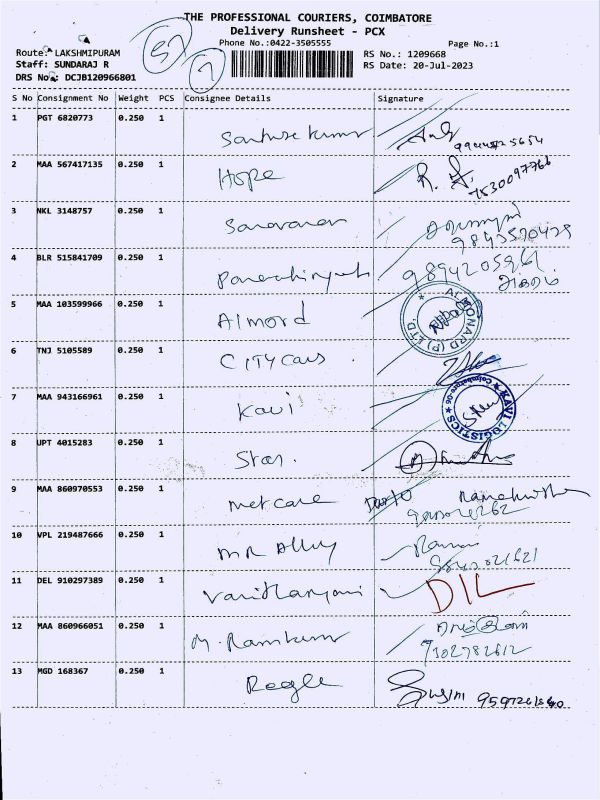 THE PROFESSIONAL COURIERS, COIMBATORE
Delivery Runsheet - PCX
Phone No.:0422-3505555 Page No.:1
Route: LAKSHMIPURAM RS No.: 1209668
Staff: SUNDARAJ R RS Date: 20-Jul-2023
DRS No.: DCJB120966801
S No Consignment No Weight PCS Consignee Details Signature
1 PGT 6820773 0.250 1
2 MAA 567417135 0.250 1 Hope
7530097766
3 NKL 3148757 0.250 1 Saravanan
9843570429
4 BLR 515841709 0.250 1
5 MAA 103599966 0.250 1 Almord
6 TNJ 5105589 0.250 1 CITY Cars
7 MAA 943166961 0.250 1 Kavi
KAVI LOGISTICS
Coimbatore-06
8 UPT 4015283 0.250 1 Star.
9 MAA 860970553 0.250 1 Metcare
10 VPL 219487666 0.250 1 MR Alloy
11 DEL 910297389 0.250 1 DIL
12 MAA 860966051 0.250 1 M. Ramkumar
7302782612
13 MGD 168367 0.250 1 Regle